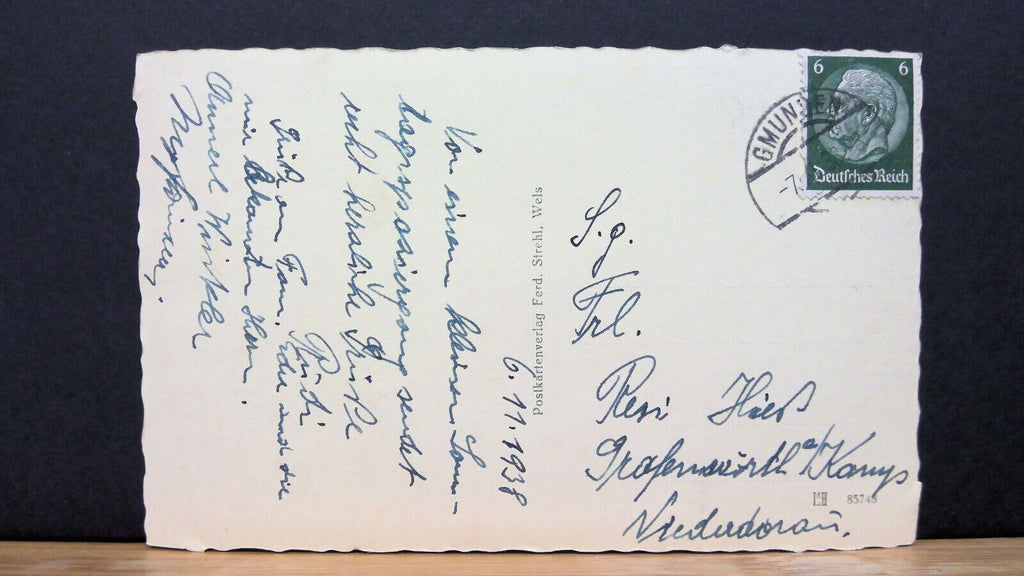 6. 11. 1938
Von einem kleinen Sonn-
tagsspaziergang sendet
recht herzliche Grüße
Rudi
Gruß an Fam. und die
mir bekannten Herrn.
Annerl Winkler
Postkartenverlag Ferd. Strehl, Wels
6 6
Deutsches Reich
GMUNDEN
-7.
S. g.
Frl.
Resi
Grafenwörth a/Kamp
Niederdonau.
L&H 85748